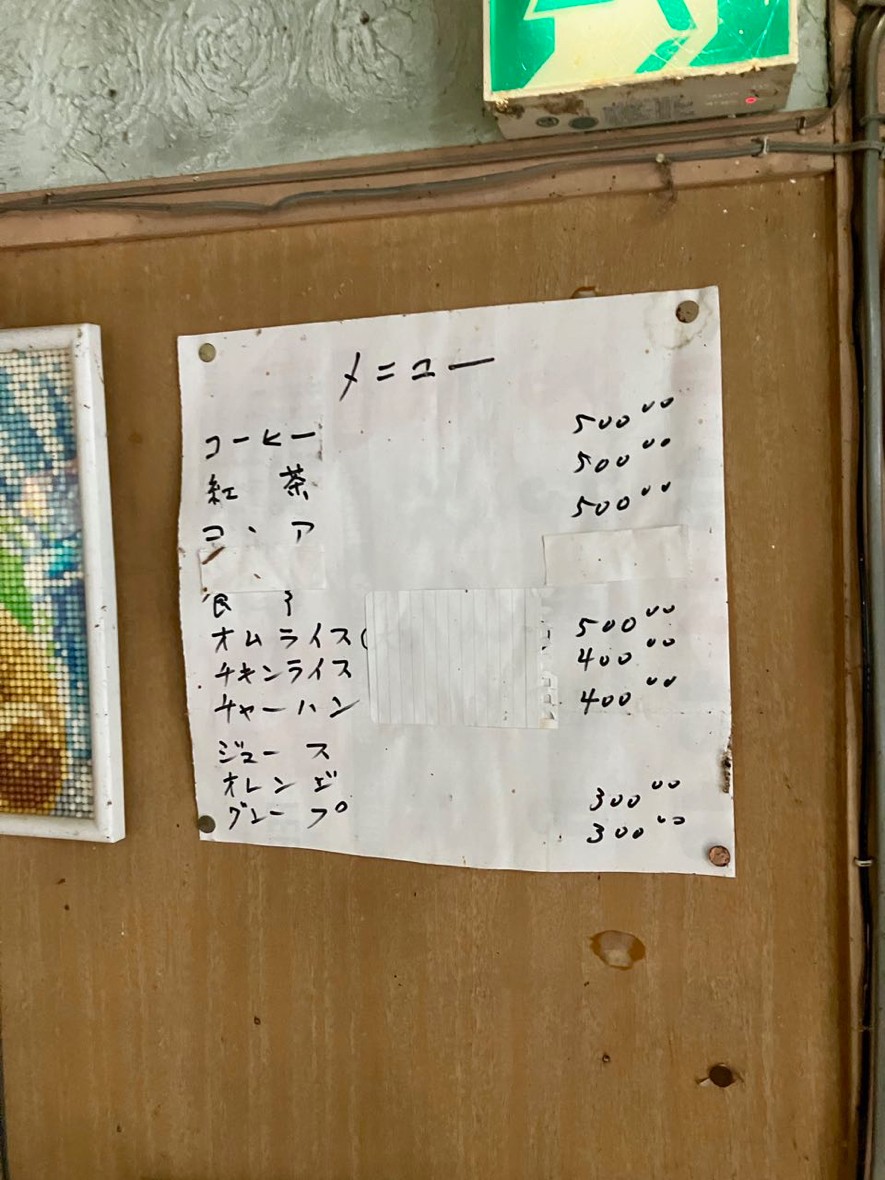 メニュー
コーヒー 500 00
紅 茶 500 00
コヽア 500 00
食 事
オムライス( 500 00
チキンライス 400 00
チャーハン 400 00
ジュース
オレンヂ 300 00
グレープ 300 00